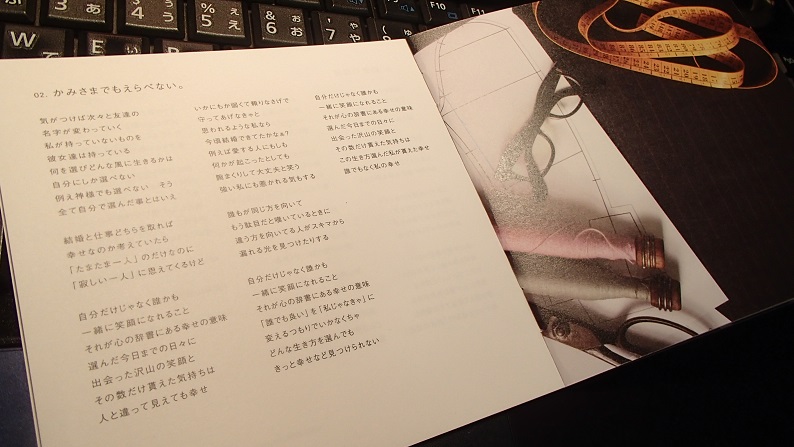 02. かみさまでもえらべない。
気がつけば次々と友達の
名字が変わっていく
私が持っていないものを
彼女達は持っている
何を選びどんな風に生きるかは
自分にしか選べない
例え神様でも選べない そう
全て自分で選んだ事とはいえ
結婚と仕事どちらを取れば
幸せなのか考えていたら
「たまたま一人」のだけなのに
「寂しい一人」に思えてくるけど
自分だけじゃなく誰かも
一緒に笑顔になれること
それが心の辞書にある幸せの意味
選んだ今日までの日々に
出会った沢山の笑顔と
その数だけ貰えた気持ちは
人と違って見えても幸せ
いかにもか弱くて頼りなさげで
守ってあげなきゃと
思われるような私なら
今頃結婚できてたかなぁ?
例えば愛する人にもしも
何かが起こったとしても
腕まくりして大丈夫と笑う
強い私にも惹かれる気もする
誰もが同じ方を向いて
もう駄目だと嘆いているときに
違う方を向いてる人がスキマから
漏れる光を見つけたりする
自分だけじゃなく誰かも
一緒に笑顔になれること
それが心の辞書にある幸せの意味
「誰でも良い」を「私じゃなきゃ」に
変えるつもりでいかなくちゃ
どんな生き方を選んでも
きっと幸せなど見つけられない
自分だけじゃなく誰かも
一緒に笑顔になれること
それが心の辞書にある幸せの意味
選んだ今日までの日々に
出会った沢山の笑顔と
その数だけ貰えた気持ちは
この生き方選んだ私が貰えた幸せ
誰でもなく私の幸せ
3 あ
4 う
% 5 え
& 6 お
7 や
W
E
F10
F11